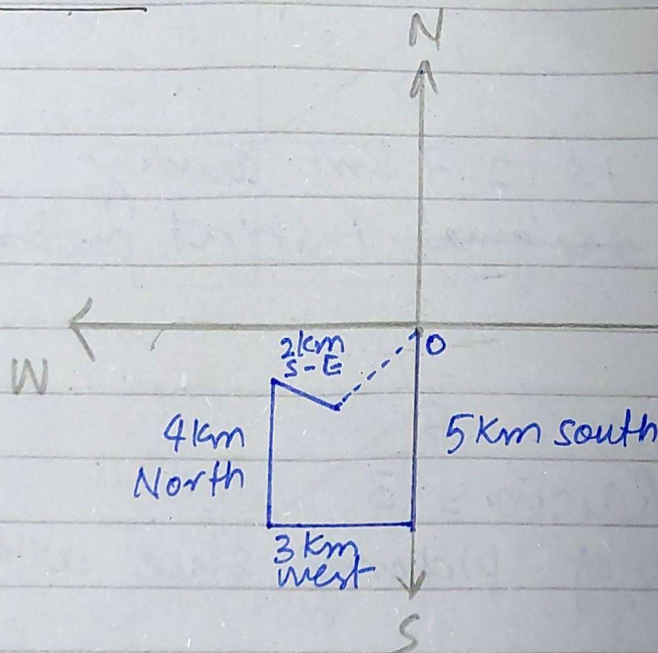 N
O
W
2km
S-E
4km
North
5km south
3km
west
S